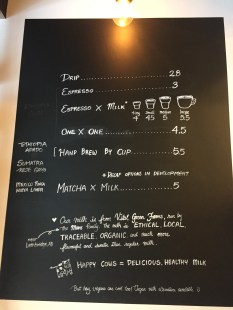 DRIP .......... 2.8
ESPRESSO .......... 3
ESPRESSO X MILK*
4 4.5 5 5.5
ONE X ONE .......... 4.5
ETHIOPIA
SUMATRA
HAND BREW BY CUP ..... 5.5
* DECAF OPTIONS IN DEVELOPMENT
MATCHA X MILK .......... 5
♥ Our milk is from Vital Green Farms, run by
the Mans family. The milk is "ETHICAL, LOCAL,
TRACEABLE, ORGANIC, and much more
flavourful and
regular milk.
HAPPY COWS = DELICIOUS, HEALTHY MILK
*But hey, vegans are cool too! Vegan milk alternatives available :)